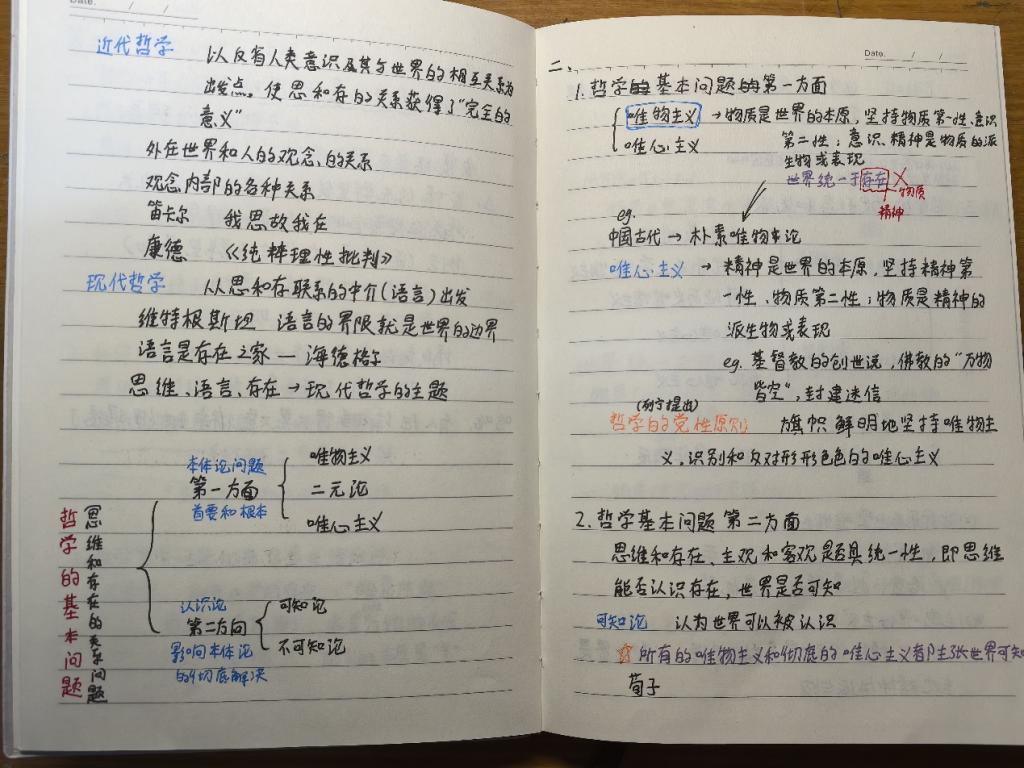 Date.
近代哲学 以反省人类意识及其与世界的相互关系为
出发点。使思和存的关系获得了“完全的
意义”
外在世界和人的观念、的关系
观念内部的各种关系
笛卡尔 我思故我在
康德 《纯粹理性批判》
现代哲学 从思和存联系的中介(语言)出发
维特根斯坦 语言的界限就是世界的边界
语言是存在之家 — 海德格尔
思维、语言、存在→现代哲学的主题
哲学的基本问题
思维和存在的关系问题
本体论问题
第一方面
首要和根本
唯物主义
二元论
唯心主义
认识论
第二方向
影响本体论
的彻底解决
可知论
不可知论
Date. / /
二、
1. 哲学的基本问题的第一方面
唯物主义 → 物质是世界的本原,坚持物质第一性、意识
唯心主义 第二性;意识、精神是物质的派
生物或表现
世界统一于存在 ✗
物质
精神
eg.
中国古代 → 朴素唯物主论
唯心主义 → 精神是世界的本原,坚持精神第
一性、物质第二性;物质是精神的
派生物或表现
eg. 基督教的创世说,佛教的“万物
皆空”,封建迷信
(列宁提出)
哲学的党性原则 旗帜鲜明地坚持唯物主
义,识别和反对形形色色的唯心主义
2. 哲学基本问题 第二方面
思维和存在、主观和客观是否具统一性,即思维
能否认识存在,世界是否可知
可知论 认为世界可以被认识
☆ 所有的唯物主义和彻底的唯心主义者都主张世界可知
荀子